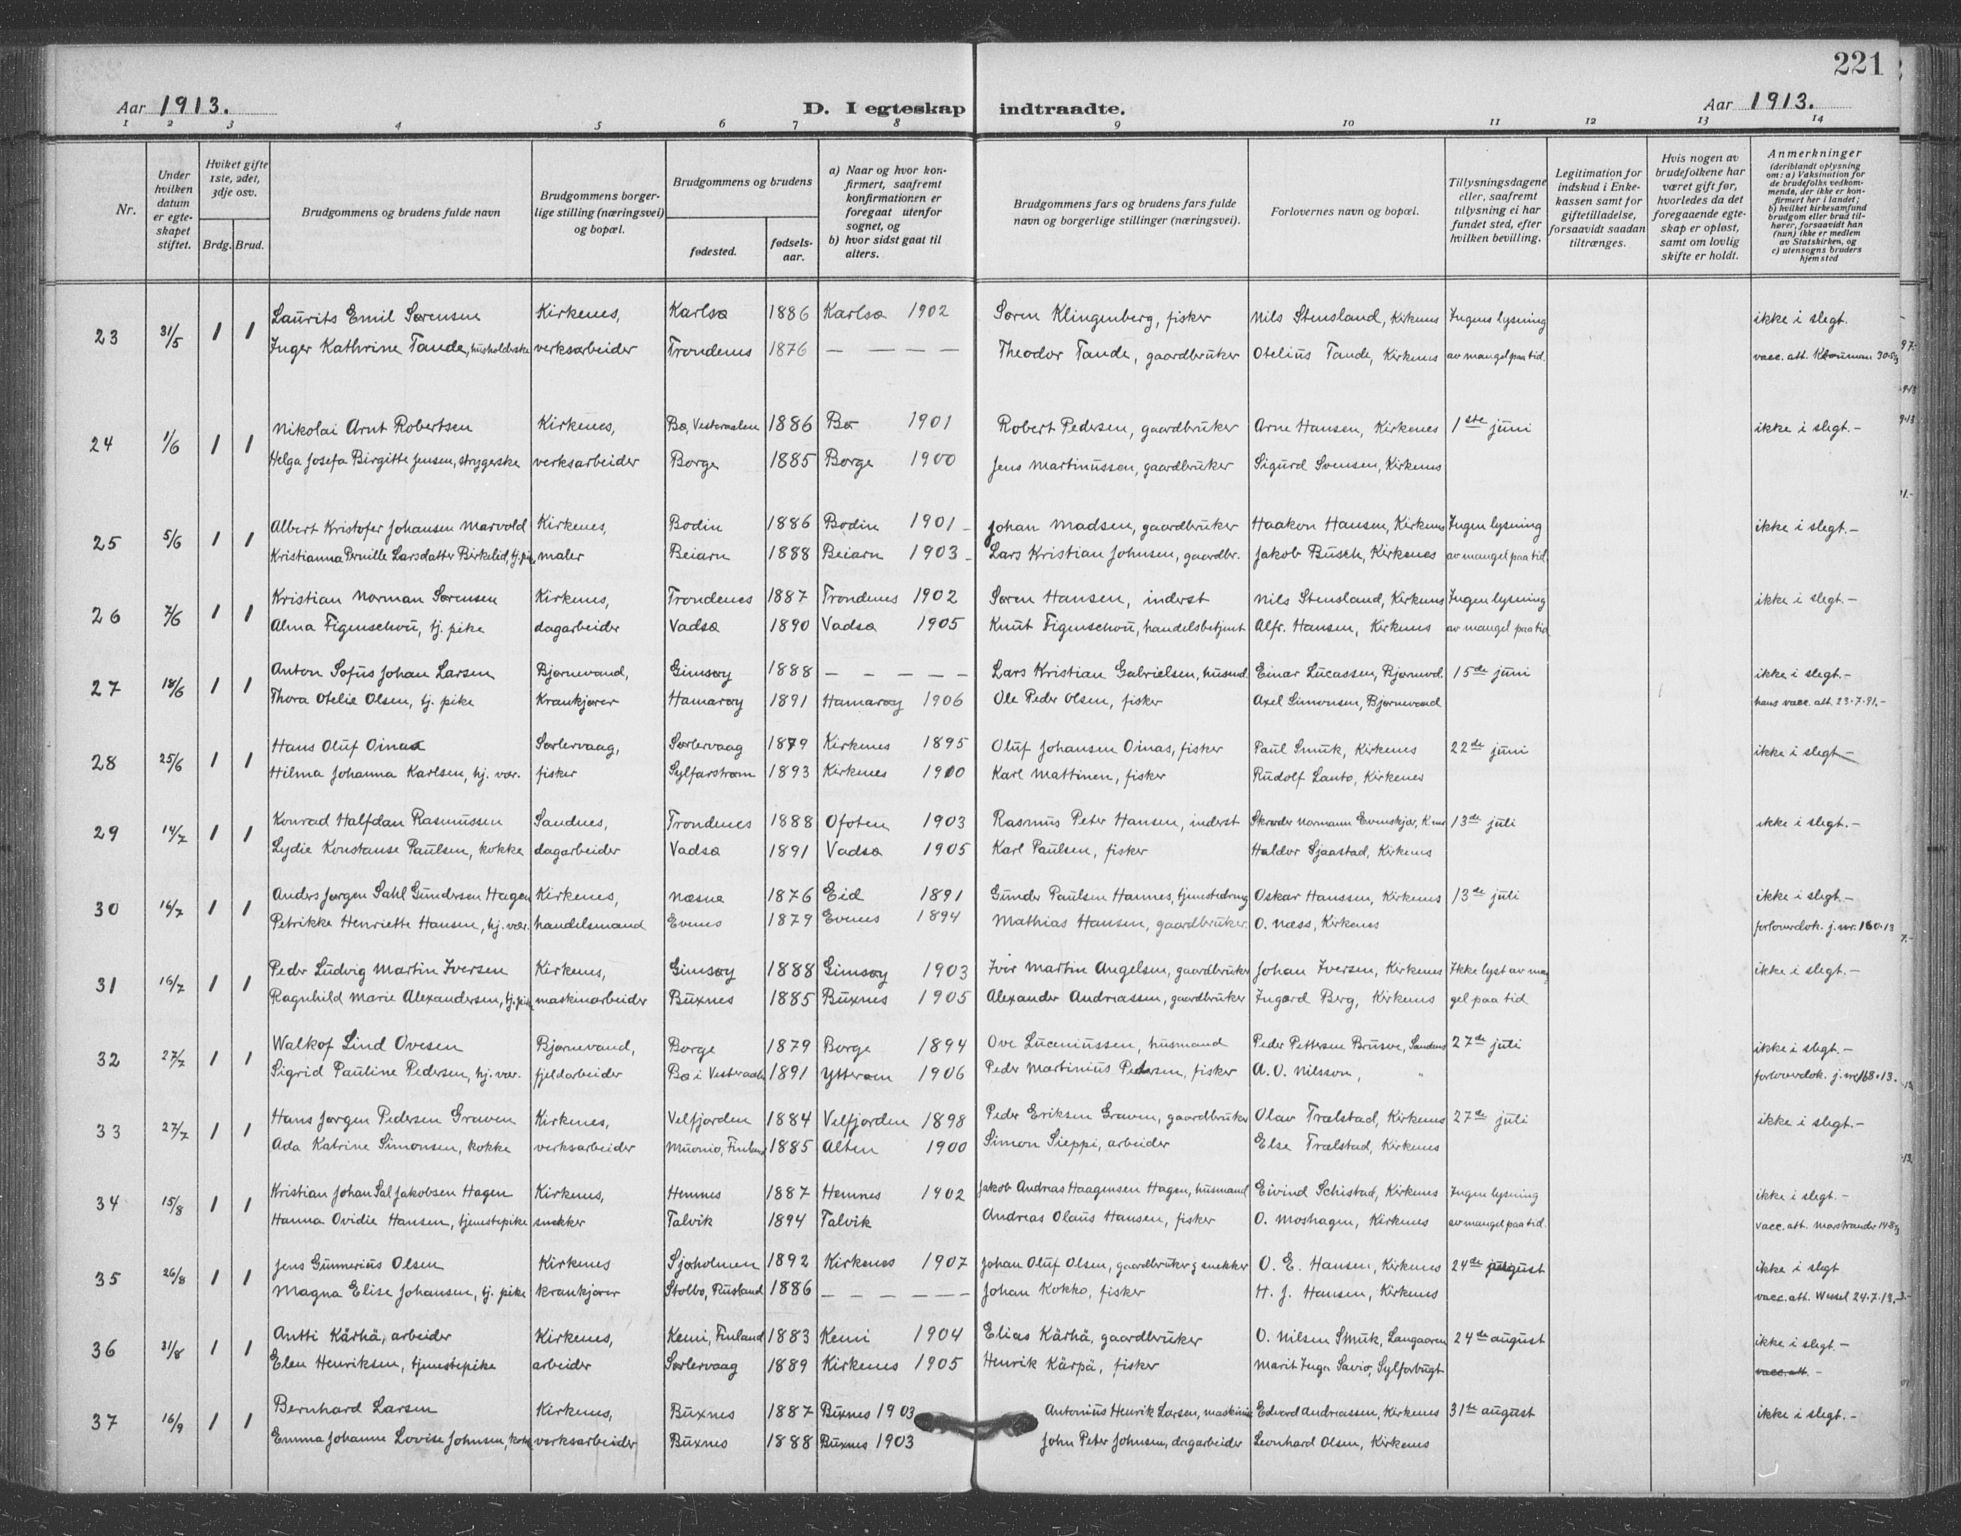 221
Aar 1913.
D. I egteskap indtraadte.
Aar 1913.
1 2 3 4 5 6 7 8 9 10 11 12 13 14
Nr.
Under hvilken datum er egteskapet stiftet.
Hviket gifte 1ste, 2det, 3dje osv.
Brdg. Brud.
Brudgommens og brudens fulde navn
Brudgommens borgerlige stilling (næringsvei) og bopæl.
Brudgommens og brudens
fødested.
fødselsaar.
a) Naar og hvor konfirmert, saafremt konfirmationen er foregaat utenfor sognet, og
b) hvor sidst gaat til alters.
Brudgommens fars og brudens fars fulde navn og borgerlige stillinger (næringsvei).
Forlovernes navn og bopæl.
Tillysningsdagene eller, saafremt tillysning ei har fundet sted, efter hvilken bevilling.
Legitimation for indskud i Enkekassen samt for giftetilladelse, forsaavidt saadan tiltrænges.
Hvis nogen av brudefolkene har været gift før, hvorledes da det foregaaende egteskap er opløst, samt om lovlig skifte er holdt.
Anmerkninger (deriblandt oplysning om: a) Vaksination for de brudefolks vedkommende, der ikke er konfirmert her i landet; b) hvilket kirkesamfund brudgom eller brud tilhører, forsaavidt han (hun) ikke er medlem av Statskirken, og c) utensogns bruders hjemsted
23 31/5 1 1 Laurits Emil Sørensen Kirkenes, Karlsø 1886 Karlsø 1902 Søren Klingenberg, fisker Nils Stensland, Kirkenes Ingen lysning ikke i slegt.
Inger Kathrine Tande, husholderske verksarbeider Trondenes 1876 — — — — Theodor Tande, gaardbruker Otelius Tande, Kirkenes av mangel paa tid. vacc. att.
24 1/6 1 1 Nikolai Arnt Robertsen Kirkenes, Bø, Vesteraalen 1886 Bø 1901 Robert Pedersen, gaardbruker Arne Hansen, Kirkenes 1ste juni ikke i slegt.-
Helga Josefa Birgitte Jensen, strygerske verksarbeider Borge 1885 Borge 1900 Jens Martinussen, gaardbruker Sigurd Svensen, Kirkenes
25 5/6 1 1 Albert Kristofer Johansen Marvold Kirkenes, Bodin 1886 Bodin 1901 Johan Madsen, gaardbruker Haakon Hansen, Kirkenes Ingen lysning ikke i slegt.-
Kristianna Pernille Larsdatter Birkelid, tj. pike maler Beiarn 1888 Beiarn 1903 Lars Kristian Johnsen, gaardbr. Jakob Busch, Kirkenes av mangel paa tid.
26 7/6 1 1 Kristian Norman Sørensen Kirkenes, Trondenes 1887 Trondenes 1902 Søren Hansen, inderst Nils Stensland, Kirkenes Ingen lysning ikke i slegt.-
Alma Figenschou, tj. pike dagarbeider Vadsø 1890 Vadsø 1905 Knut Figenschou, handelsbetjent Alfr. Hansen, Kirkenes av mangel paa tid
27 18/6 1 1 Anton Sofus Johan Larsen Bjørnevand, Gimsøy 1888 — — — — — Lars Kristian Gabrielsen, husmd. Einar Lucassen, Bjørnevd. 15de juni ikke i slegt.-
Thora Otelie Olsen, tj. pike Krankjører Hamarøy 1891 Hamarøy 1906 Ole Peder Olsen, fisker Axel Simonsen, Bjørnevand hans vacc. att. 23.7.91.-
28 25/6 1 1 Hans Oluf Oinas Sørlervaag, Sørlervaag 1879 Kirkenes 1895 Oluf Johansen Oinas, fisker Paul Smuk, Kirkenes 22de juni ikke i slegt.-
Hilma Johanna Karlsen, hj. vær. fisker Sylfarstrøm 1893 Kirkenes 1910 Karl Mattinen, fisker Rudolf Lanto, Kirkenes
29 14/7 1 1 Konrad Halfdan Rasmussen Sandnes, Trondenes 1888 Ofoten 1903 Rasmus Peter Hansen, inderst Skræder Normann Evenskjær, Knes 13de juli ikke i slegt.-
Lydie Konstanse Paulsen, kokke dagarbeider Vadsø 1891 Vadsø 1905 Karl Paulsen, fisker Haldor Sjaastad, Kirkenes
30 16/7 1 1 Anders Jørgen Sahl Gundersen Hagen Kirkenes, Næsne 1876 Eid 1891 Gunder Paulsen Hannes, tjenestedreng Oskar Hanssen, Kirkenes 13de juli ikke i slegt.-
Petrikke Henriette Hansen, hj. vær. handelsmand Evenes 1879 Evenes 1894 Mathias Hansen, gaardbruker. O. Næss, Kirkenes forloverdok. j.nr. 160.13
31 16/7 1 1 Peder Ludvig Martin Iversen Kirkenes, Gimsøy 1888 Gimsøy 1903 Iver Martin Angelsen, gaardbruker Johan Iversen, Kirkenes Ikke lyst av man ikke i slegt.-
Ragnhild Marie Alexandersen, tj. pike maskinarbeider Buxnes 1885 Buxnes 1905 Alexander Andreassen, gaardbruker Ingard Berg, Kirkenes gel paa tid
32 27/7 1 1 Walkof Lind Ovesen Bjørnevand, Borge 1879 Borge 1894 Ove Luceniussen, husmand Peder Pettersen Brusve, Sandnes 27de juli ikke i slegt.-
Sigrid Pauline Pedersen, hj. vær. fjeldarbeider Bø i Vesteraalen 1891 Ytterøen 1906 Peder Martinius Pedersen, fisker A. O. Nilsson, " forloverdok. j.nr. 168.13.
33 27/7 1 1 Hans Jørgen Pedersen Graven Kirkenes, Velfjorden 1884 Velfjorden 1898 Peder Eriksen Graven, gaardbruker Olav Trælstad, Kirkenes 27de juli ikke i slegt.-
Ada Katrine Simonsen, kokke verksarbeider Muonio, Finland 1885 Alten 1900 Simon Sieppi, arbeider Else Trælstad, Kirkenes
34 15/8 1 1 Kristian Johan Sal Jakobsen Hagen Kirkenes, Hemnes 1887 Hemnes 1902 Jakob Andreas Haagensen Hagen, husmand Eivind Schistad, Kirkenes Ingen lysning ikke i slegt.-
Hanna Ovidie Hansen, tjenestepike snekker Talvik 1894 Talvik Andreas Olaus Hansen, fisker O. Moshagen, Kirkenes av mangel paa tid. vacc. att. Marstrander
35 26/8 1 1 Jens Gunnerius Olsen Kirkenes Sjøholmen 1892 Kirkenes 1907 Johan Oluf Olsen, gaardbruker g snekker O. E. Hansen, Kirkenes 24de august ikke i slegt
Magna Elise Johansen, tj. pike krankjører Stolbo, Rusland 1886 — — — — — — Johan Kokko, fisker H. J. Hansen, Kirkenes vacc. att. Wessel 24.7.13.
36 31/8 1 1 Antti Kärhä, arbeider Kirkenes, Kemi, Finland 1883 Kemi 1904 Elias Kärhä, gaardbruker O. Nilsen Smuk, Langøren 24de august ikke i slegt.-
Elen Henriksen, tjenestepike arbeider Sørlervaag 1889 Kirkenes 1905 Henrik Kärpä, fisker Marit Inga Savio, Sylforbugt vacc. att. -
37 16/9 1 1 Bernhard Larsen Kirkenes, Buxnes 1887 Buxnes 1903 Antonius Henrik Larsen, maskinist Edvard Andreassen, Kirkenes 31te august ikke i slegt.-
Emma Johanne Lovise Johnsen, kokke verksarbeider Buxnes 1888 Buxnes 1903 John Peter Johnsen, dagarbeider Leonhard Olsen, Kirkenes